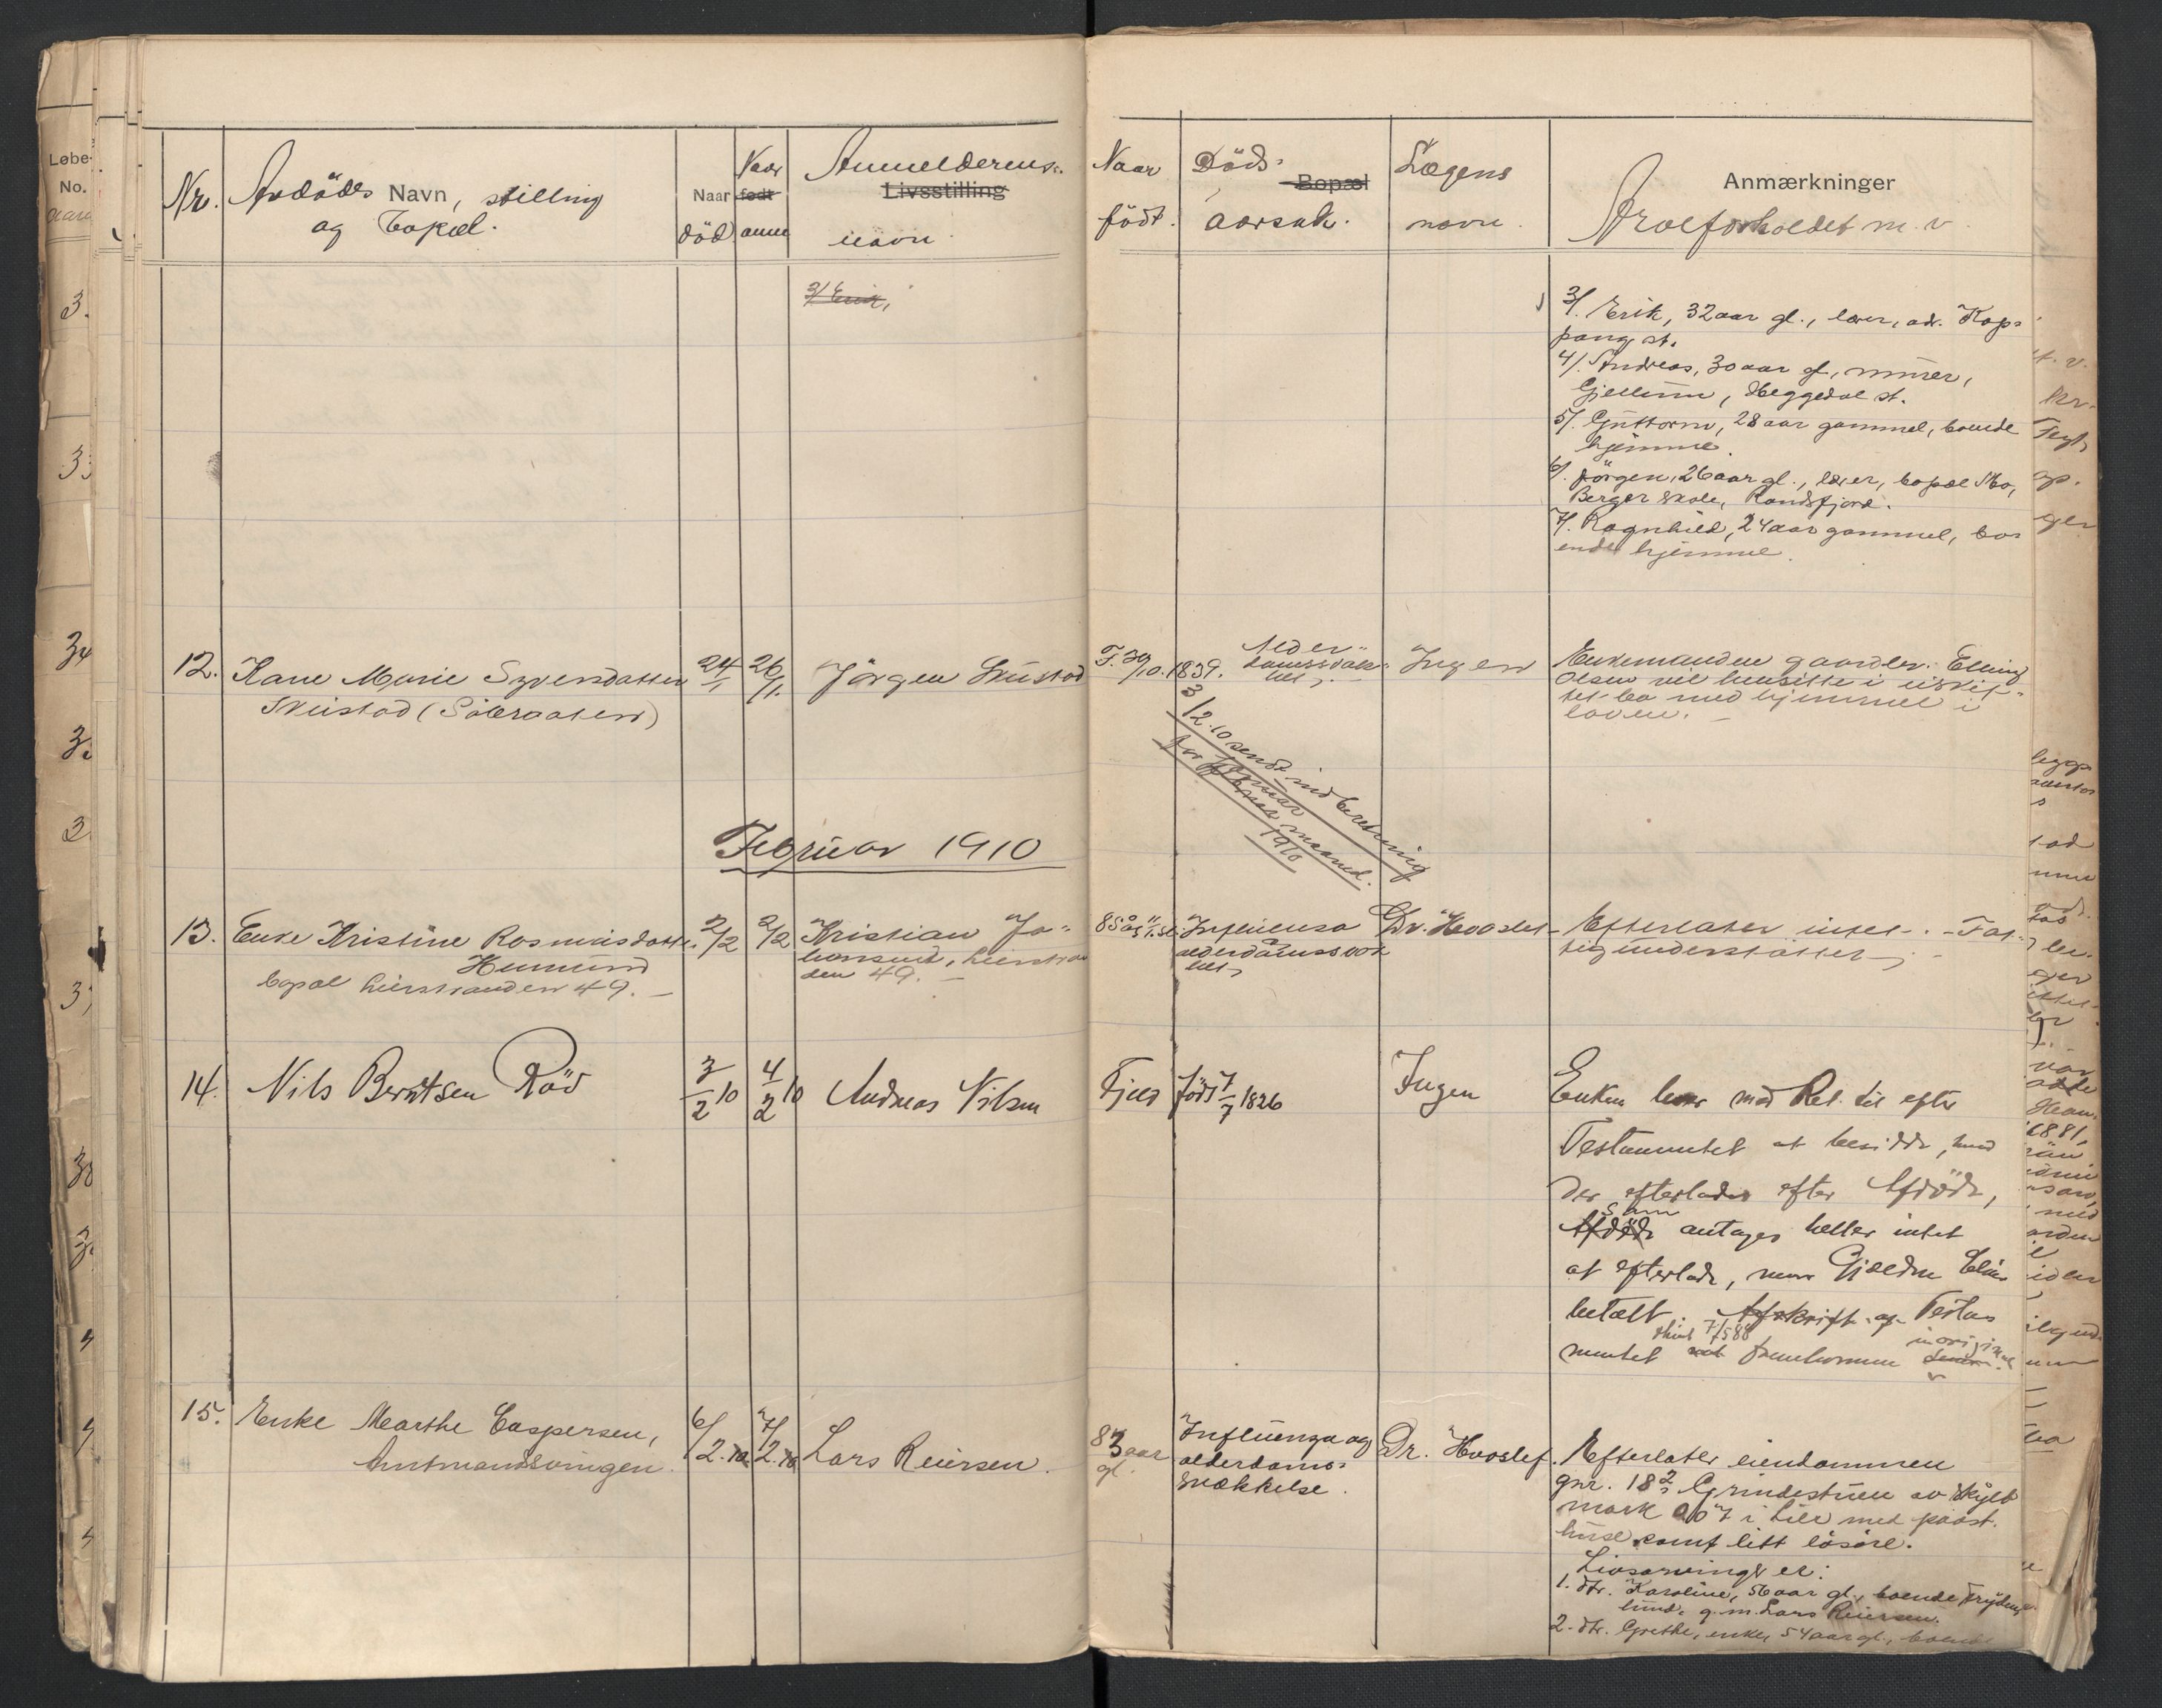 Løbe-
No.
Nr.
Avdödes Navn, stilling
og bopæl.
Naar
död
Naar
født
anm
Anmelderens
Livsstilling
navn
Naar
født.
Döds-
Bopæl
aarsak.
Lægens
navn.
Anmærkninger
Arveforholdet m. v.
3/ Erik,
3/. Erik, 32 aar gl., lærer, adr. Kop-
pang st.
4/. Andreas, 30 aar gl., murer,
Gjellum, Heggedal st.
5/. Guttorm, 28 aar gammel, boende
hjemme.
6/. Jörgen, 26 aar gl., lærer, bopæl Mo,
Berger skole, Randsfjord.
7/. Ragnhild, 24 aar gammel, bo-
ende hjemme.
12.
Karen Marie Syvensdatter
Skustad (Säteraasen)
24/1
26/1.
Jörgen Skustad
F. 30/10.1839.
Alder-
domssvak-
het,
Ingen
Enkemanden gaardbr. Elling
Olsen vil hensitte i uskif-
tet bo med hjemmel i
loven.
3/2.10 sendt ind beretning
for januar maaned.
1910
Februar 1910
13.
Enke Kristine Rasmusdatter
Hummund
bopæl Lierstranden 49.
2/2
2/2
Kristian Jo-
hansend, Lierstran
den 49.
85 aar
Influensa
alderdomssvak
het,
Dr. Hvoslef
Efterlater intet. - Fat-
tigunderstöttet,
14.
Nils Berntsen Röd
3/2 10
4/2 10
Andreas Nilsen
Fjeld
født 7/7 1826
Ingen
Enken lever med Ret til efter
Testamentet at besidde, hvad
der efterlades efter Afdöde,
som
Afdöde antages heller intet
at efterlade, naar Gjælden bliver
betalt. Afskrift af Testa
mentet skint 7/5 88 fremkommer i original
15.
Enke Marthe Caspersen,
Amtmandsvingen.
6/2.10
7/2.10
Lars Reiersen.
83 aar
gl.
Influenza og
alderdoms-
svækkelse.
Dr. Hvoslef.
Efterlater eiendommen
gnr. 18 2/3 Grindestuen av skyld
mark 0,07 i Lier med paast.
huse samt litt lösöre.
Livsarvinger er:
1. dtr. Karoline, 56 aar gl., boende Fryden-
lund, g. m. Lars Reiersen.
2. dtr. Grethe, enke, 54 aar gl., boende